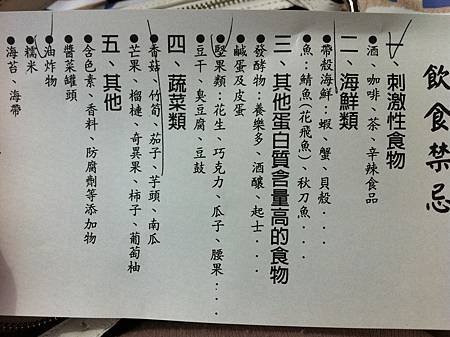 飲食禁忌
一、刺激性食物
●酒、咖啡、茶、辛辣食品
二、海鮮類
●帶殼海鮮:蝦、蟹、貝殼...
●魚:鯖魚(花飛魚)、秋刀魚...
三、其他蛋白質含量高的食物
●發酵物:養樂多、酒釀、起士...
●鹹蛋及皮蛋
●堅果類:花生、巧克力、瓜子、腰果...
●豆干、臭豆腐、豆鼓
四、蔬菜類
●香菇、竹筍、茄子、芋頭、南瓜
●芒果、榴槤、奇異果、柿子、葡萄柚
五、其他
●含色素、香料、防腐劑等添加物
●醬菜罐頭
●油炸物
●糯米
●海苔、海帶